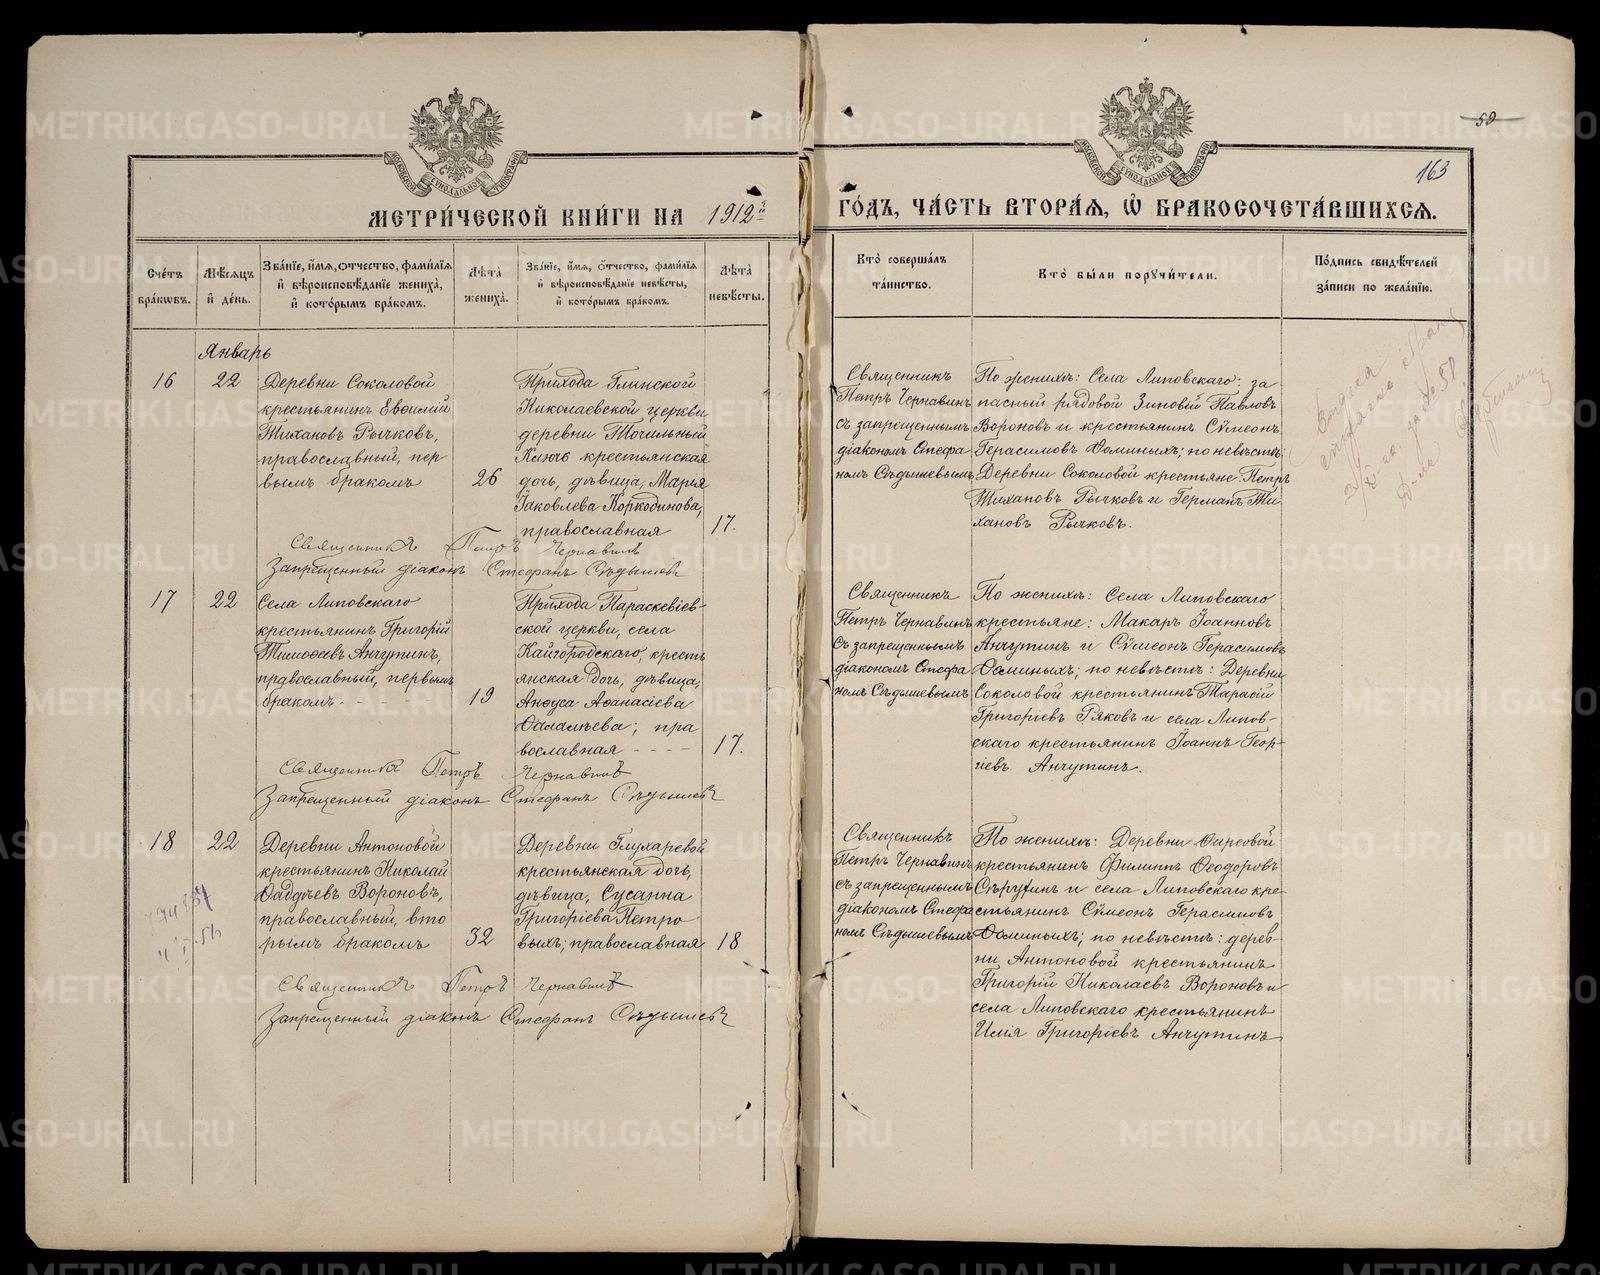 МЕТРИ́ЧЕСКОЙ КНИ́ГИ НА 1912й
ГО́ДЪ, ЧА́СТЬ ВТОРА́Я, Ѡ҆ БРАКОСОЧЕТА́ВШИХСѦ.
59
163
МОСКОВСКОЙ СѴНОДАЛЬНОЙ ТИПОГРАФІИ
МОСКОВСКОЙ СѴНОДАЛЬНОЙ ТИПОГРАФІИ
Сче́тъ бра́кѡвъ.
Мѣ́сѧцъ и҆ де́нь.
Зва́нїе, и҆́мѧ, ѻ҆́тчество, фами́лїѧ и҆ вѣроисповѣ́данїе жениха̀, и҆ кото́рымъ бра́комъ.
Лѣ́та жениха̀.
Зва́нїе, и҆́мѧ, ѻ҆́тчество, фами́лїѧ и҆ вѣроисповѣ́данїе невѣ́сты, и҆ кото́рымъ бра́комъ.
Лѣ́та невѣ́сты.
Кто̀ соверша́лъ та́инство.
Кто̀ бы́ли порꙋчи́тели.
По́дпись свидѣ́телей за́писи по жела́нїю.
Январь
16
22
Деревни Соколовой
крестьянинъ Евѳимій
Тихановъ Рычковъ,
православный, пер
вымъ бракомъ
26
Прихода Глинской
Николаевской церкви
деревни Точильный
Ключъ крестьянская
дочь, дѣвица, Марія
Іаковлева Коркодинова,
православная
17.
Священникъ
Петръ Чернавинъ
съ запрещеннымъ
діакономъ Стефа
номъ Сѣдышевымъ
По женихѣ: Села Липовскаго: за
пасный рядовой Зиновій Павловъ
Вороновъ и крестьянинъ Сѵмеонъ
Герасимовъ Ѳоминыхъ; по невѣстѣ:
Деревни Соколовой крестьяне: Петръ
Тихановъ Рычковъ и Германъ Ти
хановъ Рычковъ.
Священникъ Петръ Чернавинъ
Запрещенный діаконъ Стефанъ Сѣдышевъ
17
22
Села Липовскаго
крестьянинъ Григорій
Тимоѳеевъ Анчутинъ,
православный, первымъ
бракомъ - - - -
19
Прихода Параскевіев-
ской церкви, села
Кайгородскаго, кресть
янская дочь, дѣвица,
Анѳуса Аѳанасіева
17.
вославная - - - -
Священникъ
Петръ Чернавинъ
съ запрещеннымъ
діакономъ Стефа
номъ Сѣдышевымъ
По женихѣ: Села Липовскаго
крестьяне: Макаръ Іоанновъ
Анчутинъ и Сѵмеонъ Герасимовъ
Ѳоминыхъ; по невѣстѣ: Деревни
Соколовой крестьянинъ Тарасій
Григоріевъ Ряковъ и села Липов-
скаго крестьянинъ Іоаннъ Геор-
гіевъ Анчутинъ.
Священникъ Петръ Чернавинъ
Запрещенный діаконъ Стефанъ Сѣдышевъ
18
22
Деревни Антоновой
крестьянинъ Николай
Ѳаддѣевъ Вороновъ,
православный, вто
рымъ бракомъ
32
Деревни Глухаревой
крестьянская дочь,
дѣвица, Сусанна
Григоріева Петро
выхъ, православная
18
Священникъ
Петръ Чернавинъ
съ запрещеннымъ
діакономъ Стефа
номъ Сѣдышевымъ
По женихѣ: Деревни
крестьянинъ Филиппъ Ѳеодоровъ
и села Липовскаго кре-
стьянинъ Сѵмеонъ Герасимовъ
Ѳоминыхъ; по невѣстѣ: дерев-
ни Антоновой крестьянинъ
Григорій Николаевъ Вороновъ и
села Липовскаго крестьянинъ
Илія Григоріевъ Анчутинъ
Священникъ Петръ Чернавинъ
Запрещенный діаконъ Стефанъ Сѣдышевъ
METRIKI.GASO-URAL.RU